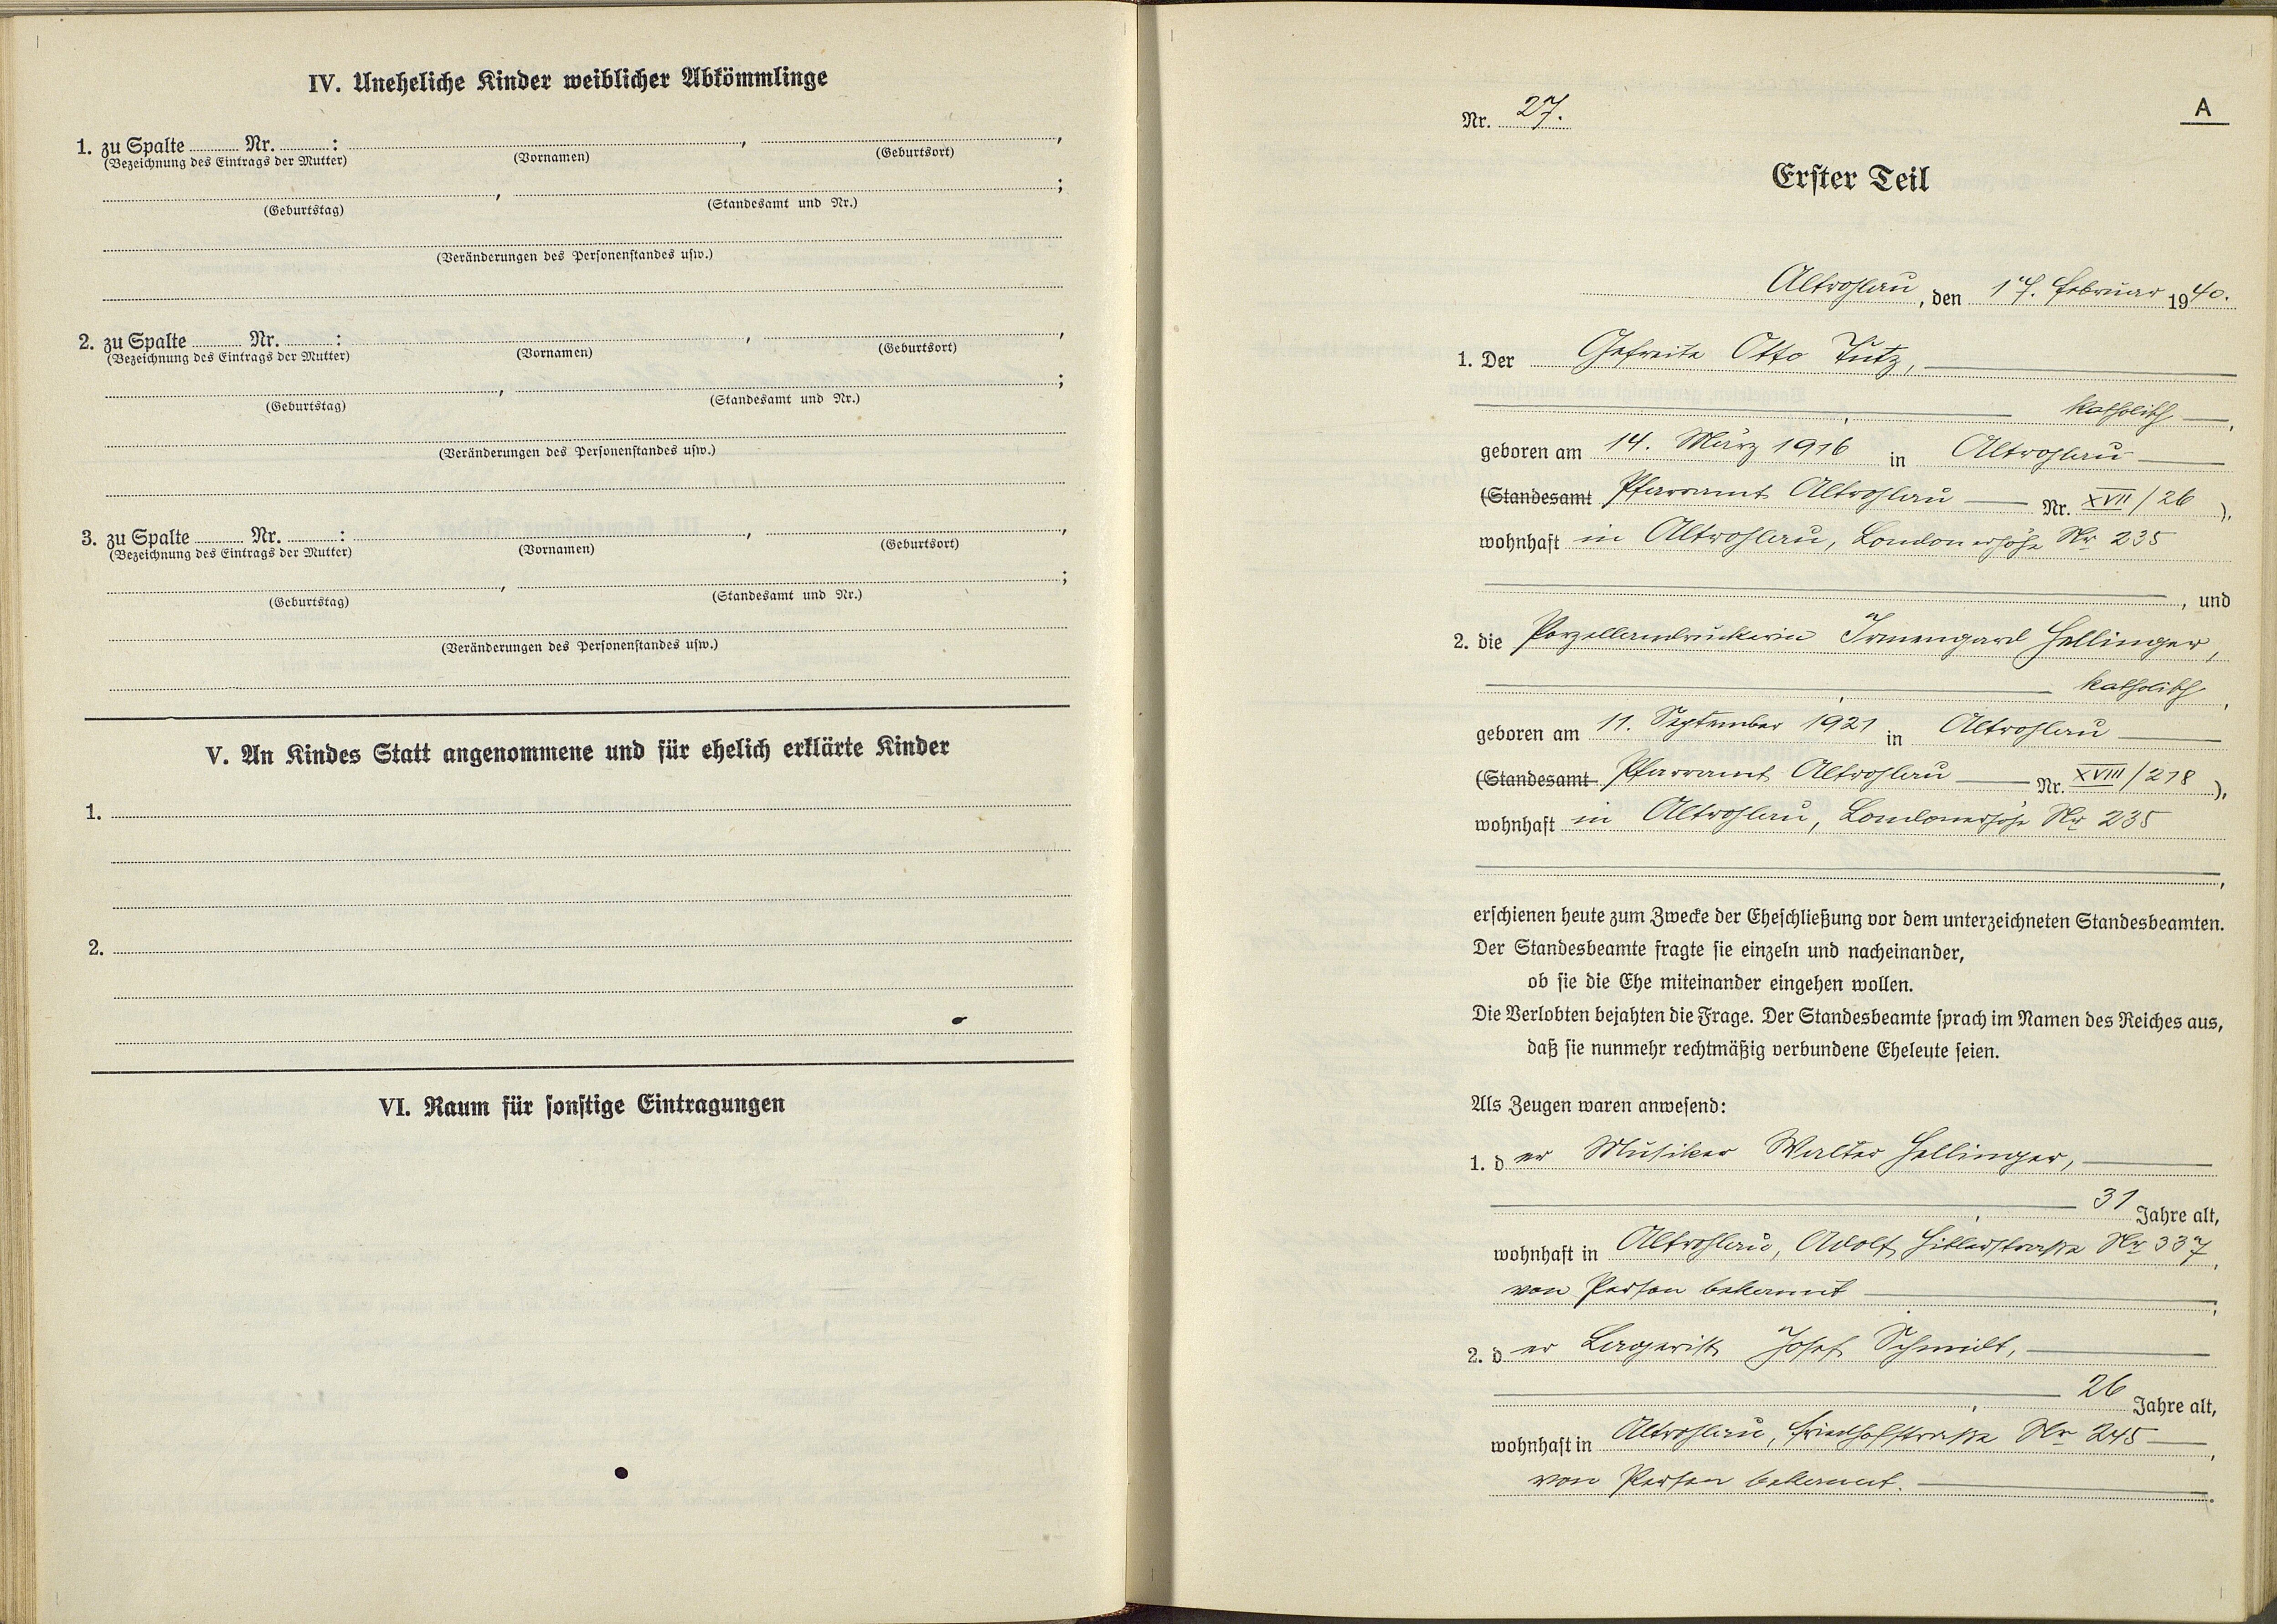 IV. Uneheliche Kinder weiblicher Abkömmlinge
1. zu Spalte ........ Nr. ........ :
(Bezeichnung des Eintrags der Mutter) (Vornamen) (Geburtsort)
(Geburtstag) (Standesamt und Nr.)
(Veränderungen des Personenstandes usw.)
2. zu Spalte ........ Nr. ........ :
(Bezeichnung des Eintrags der Mutter) (Vornamen) (Geburtsort)
(Geburtstag) (Standesamt und Nr.)
(Veränderungen des Personenstandes usw.)
3. zu Spalte ........ Nr. ........ :
(Bezeichnung des Eintrags der Mutter) (Vornamen) (Geburtsort)
(Geburtstag) (Standesamt und Nr.)
(Veränderungen des Personenstandes usw.)
V. An Kindes Statt angenommene und für ehelich erklärte Kinder
1.
2.
VI. Raum für sonstige Eintragungen
A
Nr. 27.
Erster Teil
Altrohlau, den 17. Februar 1940.
1. Der Gefreite Otto Tutz,
katholisch,
geboren am 14. März 1916 in Altrohlau
(Standesamt Pfarramt Altrohlau Nr. XVII/26),
wohnhaft in Altrohlau, Londonerhöhe Nr 235
, und
2. die Porzellandruckerin Irmengard Hellinger,
katholisch,
geboren am 11. September 1921 in Altrohlau
(Standesamt Pfarramt Altrohlau Nr. XVIII/218),
wohnhaft in Altrohlau, Londonerhöhe Nr 235
erschienen heute zum Zwecke der Eheschließung vor dem unterzeichneten Standesbeamten.
Der Standesbeamte fragte sie einzeln und nacheinander,
ob sie die Ehe miteinander eingehen wollen.
Die Verlobten bejahten die Frage. Der Standesbeamte sprach im Namen des Reiches aus,
daß sie nunmehr rechtmäßig verbundene Eheleute seien.
Als Zeugen waren anwesend:
1. der Musiker Walter Hellinger,
31 Jahre alt,
wohnhaft in Altrohlau, Adolf Hitlerstraße Nr 337,
von Person bekannt;
2. der Lagerist Josef Schmidt,
26 Jahre alt,
wohnhaft in Altrohlau, Friedhofstraße Nr 245,
von Person bekannt.